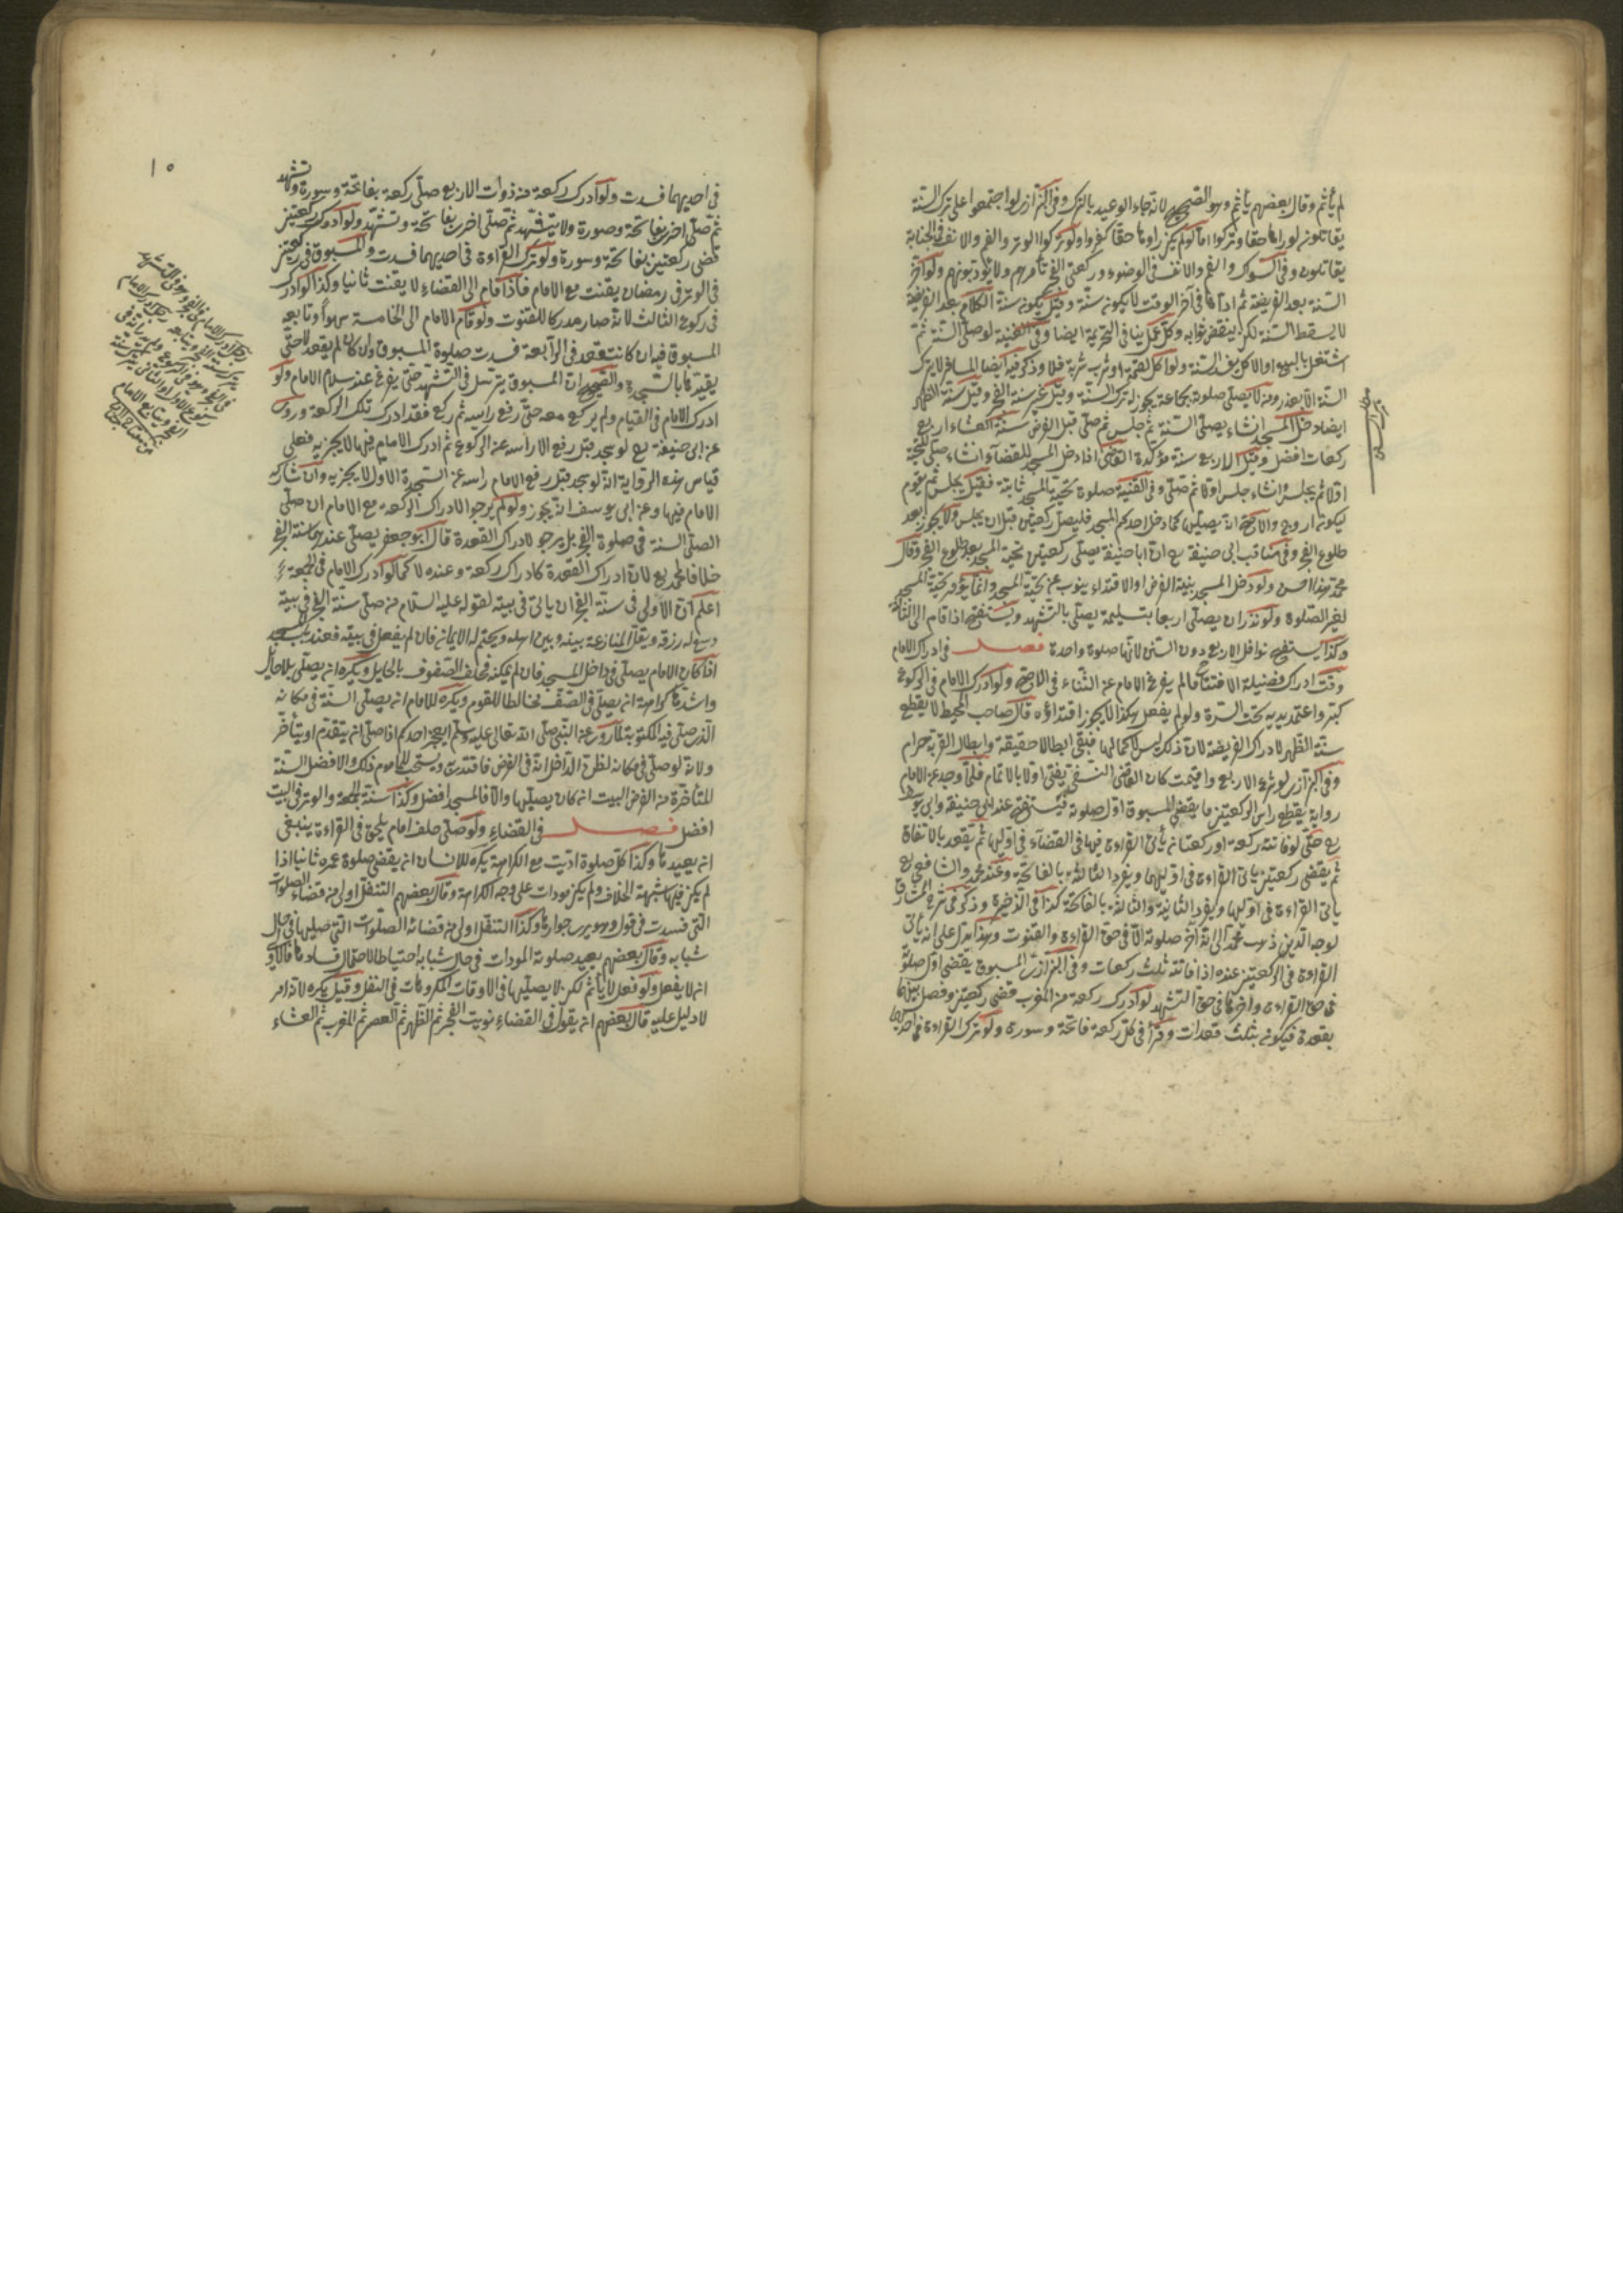 لم يأثم وقال بعضهم يأثم وهو الصحيح لانه جاء الوعيد بالترك وفى البزازى لو اجتمعوا على ترك السنة
يقاتلون لو راوها حقا وتركوا اما لو لم يكن راوها حقا كفروا ولو تركوا الوتر والفم والانف فى الجنابة
يقاتلون وفى السواك والفم والانف فى الوضوء وركعتى الفجر تأمرهم ولا يؤدبونهم ولو اخر
السنة بعد الفريضة ثم اداها فى آخر الوقت لا يكون سنة وقيل يكون سنة الكلام بعد الفريضة
لا يسقط السنة لكن ينقض ثوابه وكل عمل ينافى التحريمة ايضا وفى القنية لو صلى السنة ثم
اشتغل بالبيع او الاكل يفسد السنة ولو اكل لقمة او شرب شربة فلا وذكر فيه ايضا المسافر لا يترك
السنة الا بعذر ومن لا يصلى صلوة بجماعة يجوز له ترك السنة وقيل غير سنة الفجر وقيل سنة الظهر
ايضا دخل المسجد ان شاء يصلى السنة ثم جلس ثم صلى قبل الفرض سنة العشاء اربع
ركعات افضل وقيل الاربع سنة مؤكدة القاضى اذا دخل المسجد للقضاء ان شاء صلى التحية
اولا ثم يجلس وان شاء جلس اولا ثم صلى وفى القنية صلوة تحية المسجد ثابتة فقيل يجلس ثم يقوم
ليكون اروح والاصح انه يصليها كما دخل احدكم المسجد فليصل ركعتين قبل ان يجلس ولا يجوز بعد
طلوع الفجر وفى مناقب ابى حنيفة رح ان ابا حنيفة يصلى ركعتين تحية المسجد بعد طلوع الفجر وقال
محمد هذا احسن ولو دخل المسجد بنية الفرض او الاقتداء ينوب عن تحية المسجد وانما يؤمر بتحية المسجد
لغير الصلوة ولو نذر ان يصلى اربعا بتسليمة يصلى بالتشهد ويستفتح اذا قام الى الثالثة
وكذا يستفتح نوافل الاربع دون السنن لانها صلوة واحدة فصل فى ادراك الامام
وقت ادراك فضيلة الافتتاح ما لم يفرغ الامام عن الثناء فى الاصح ولو ادرك الامام فى الركوع
كبر واعتمد يديه تحت السرة ولو لم يفعل هكذا لا يجوز اقتداؤه قال صاحب المحيط لا يقطع
سنة الظهر لادراك الفريضة لان ذلك ليس لاكمالها فبقى ابطالا حقيقة وابطال القربة حرام
وفى البزازى لو شرع الاربع واقيمت كان القاضى النسفى يفتى اولا بالاتمام فلما وجد عن الامام
رواية يقطع راس الركعتين ما يقضى المسبوق اول صلوته فيستفتح عند ابى حنيفة وابى يوسف
رح حتى لو فاتته ركعة او ركعتان يأتى القراءة فيها فى القضاء فى اوليها ثم يقعد بالاتفاق
ثم يقضى ركعتين ياتى القراءة فى اوليهما ويفرد الثالثة بالفاتحة وعند محمد والشافعى رح
ياتى القراءة فى اوليها ويفرد الثانية والثالثة بالفاتحة كذا فى الذخيرة وذكر فى شرح المشارق
لوجه الدين ذهب محمد الى انه اخر صلوته الا فى حق القراءة والقنوت وهذا يدل على انه يأتى
القراءة فى الركعتين عنده اذا فاتته ثلث ركعات وفى البزازى المسبوق يقضى اول صلوته
فى حق القراءة واخرها فى حق التشهد لو ادرك ركعة من المغرب قضى ركعتين وفصل بينهما
بقعدة فيكون بثلث قعدات وقرأ فى كل ركعة فاتحة وسورة ولو ترك القراءة فى احديهما
١٥
فى احديهما فسدت ولو ادرك ركعة من ذوات الاربع صلى ركعة بفاتحة وسورة وتشهد
ثم صلى اخرى بفاتحة وصورة ولا يتشهد ثم صلى اخرى بفاتحة وتشهد ولو ادرك ركعتين
قضى ركعتين بفاتحة وسورة ولو ترك القراءة فى احديهما فسدت والمسبوق فى ركعتين
فى الوتر فى رمضان يقنت مع الامام فاذا قام الى القضاء لا يقنت ثانيا وكذا لو ادرك
فى ركوع الثالث لانه صار مدركا للقنوت ولو قام الامام الى الخامسة سهوا وتابعه
المسبوق فيه ان كانت قعد فى الرابعة فسدت صلوة المسبوق وان كان لم يقعد لا حتى
يقيدها بالسجدة والصحيح ان المسبوق يترسل فى التشهد حتى يفرغ عند سلام الامام ولو
ادرك الامام فى القيام ولم يركع معه حتى رفع راسه ثم ركع فقد ادرك تلك الركعة وروى
عن ابى حنيفة رح لو سجد قبل رفع الامام راسه عن الركوع ثم ادرك الامام فيها لا يجزيه فعلى
قياس هذه الرواية انه لو سجد قبل رفع الامام راسه عن السجدة الاولى لا يجزيه وان شارك
الامام فيها وعن ابى يوسف انه يجوز ولو لم يرجو الادراك الركعة مع الامام ان صلى
الصلى السنة فى صلوة الفجر بل يرجو لادراك القعدة قال ابو جعفر يصلى عندهما سنة الفجر
خلافا لمحمد رح لان ادراك القعدة كادراك ركعة وعنده لا كما لو ادرك الامام فى الجمعة
اعلم ان الاولى فى سنة الفجر ان ياتى فى بيته لقوله عليه السلام من صلى سنة الفجر فى بيته
وسع له رزقه ويقل المنازعة بينه وبين اهله ويختم له الايمان فان لم يفعل فى بيته فعند باب المسجد
اذا كان الامام يصلى فى داخل المسجد فان لم يمكنه فخلف الصفوف بالحايل ويكره ان يصلى بلا حائل
واشدها كراهة ان يصلى فى الصف مخالطا للقوم ويكره للامام ان يصلى السنة فى مكانه
الذى صلى فيه المكتوبة لما روى عن النبى صلى الله تعالى عليه وسلم ايعجز احدكم اذا صلى ان يتقدم او يتأخر
ولانه لو صلى فى مكانه لظن الداخل انه فى الفرض فاقتدى به ويستحب للماموم ذلك والافضل السنة
المتأخرة من الفرض البيت ان كان يصليها والا فالمسجد افضل وكذا سنة الجمعة والوتر فى البيت
افضل فصل فى القضاء ولو صلى خلف امام يلحن فى القراءة ينبغى
ان يعيدها وكذا كل صلوة اديت مع الكراهة يكره للانسان ان يقضى صلوة عمره ثانيا اذا
لم يكن فيها شبهة الخلاف ولم يكن مودات على وجه الكراهة وقال بعضهم التنفل اولى من قضاء الصلوت
التى فسدت فى قول وهو يرى جوازها وكذا التنفل اولى من قضائه الصلوت التى صليها فى حال
شبابه وقال بعضهم يعيد صلوته المودات فى حال شبابه احتياطا لاحتمال فسادها قالا
انه لا يفعل ولو فعل لا يأثم لكن لا يصليها فى الاوقات المكروهات فى النفل وقيل يكره لانه امر
لا دليل عليه قال بعضهم انه يقول فى القضاء نويت الفجر ثم الظهر ثم العصر ثم المغرب ثم العشاء